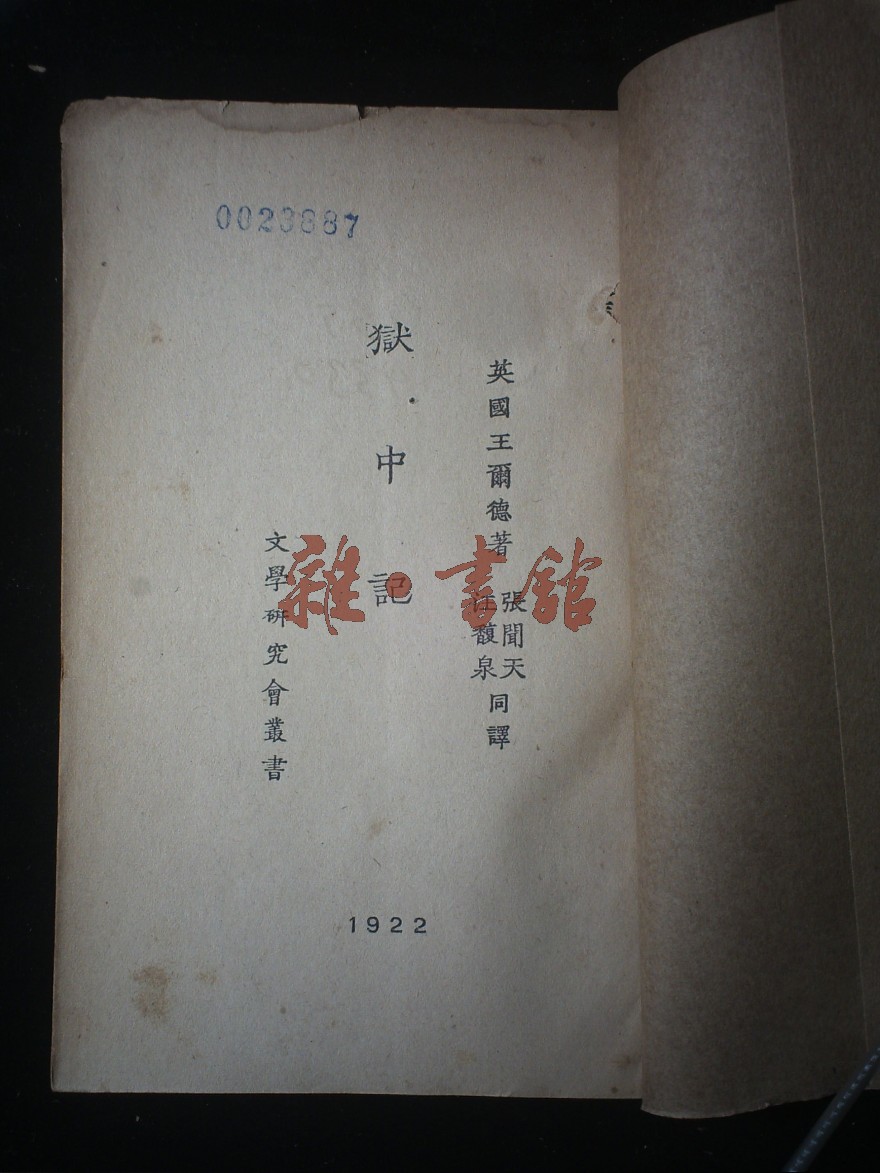 0023687
英國王爾德著
張聞天
汪馥泉
同譯
獄中記
文學研究會叢書
1922
雜·書館